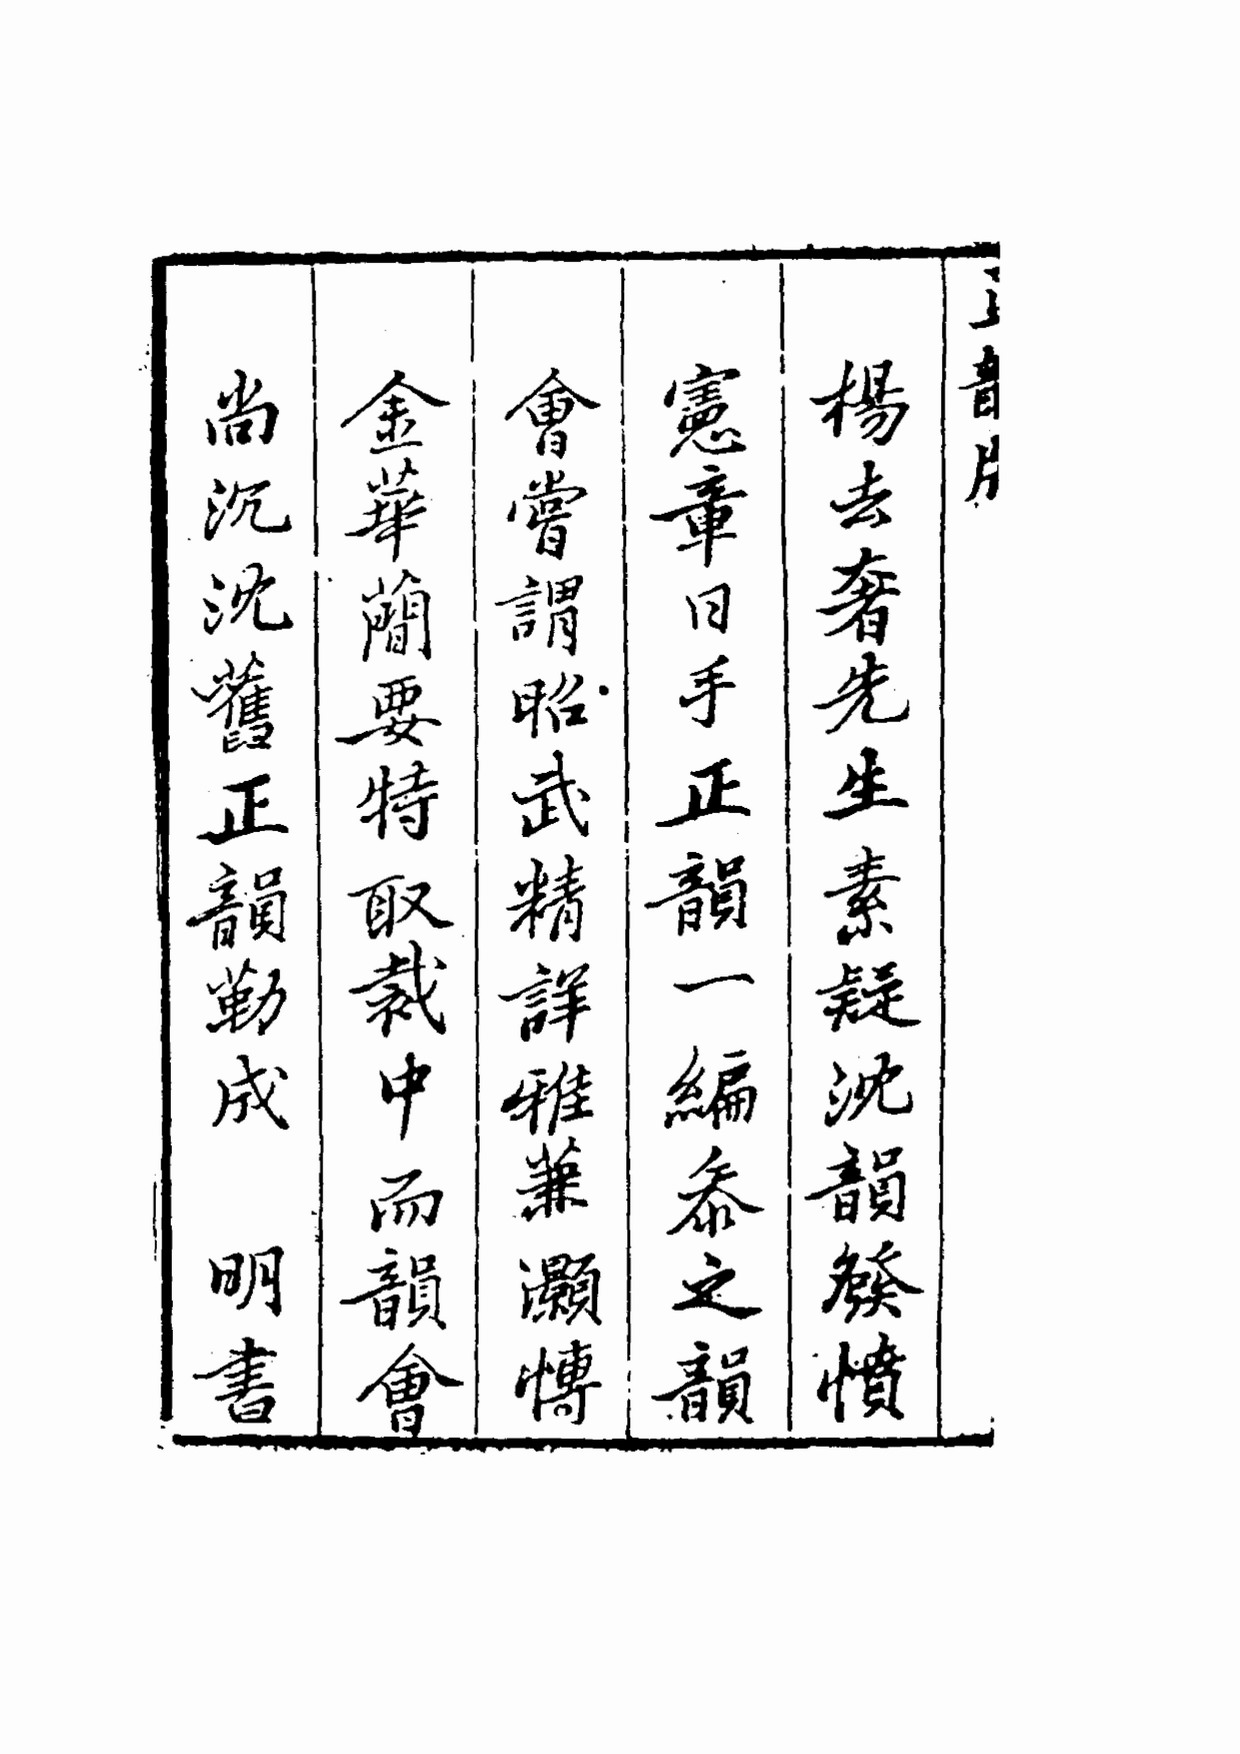 正韻
楊去奢先生素疑沈韻發憤
憲章日手正韻一編叅之韻
會嘗謂昭武精詳雅兼灝愽
金華簡要特取裁中而韻會
尚沉沈舊正韻勒成　明書